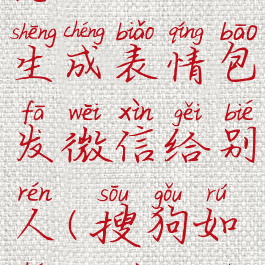 shēng chéng biǎo qíng bāo
生成表情包
fā wēi xìn gěi bié
发微信给别
rén sōu gǒu rú
人(搜狗如